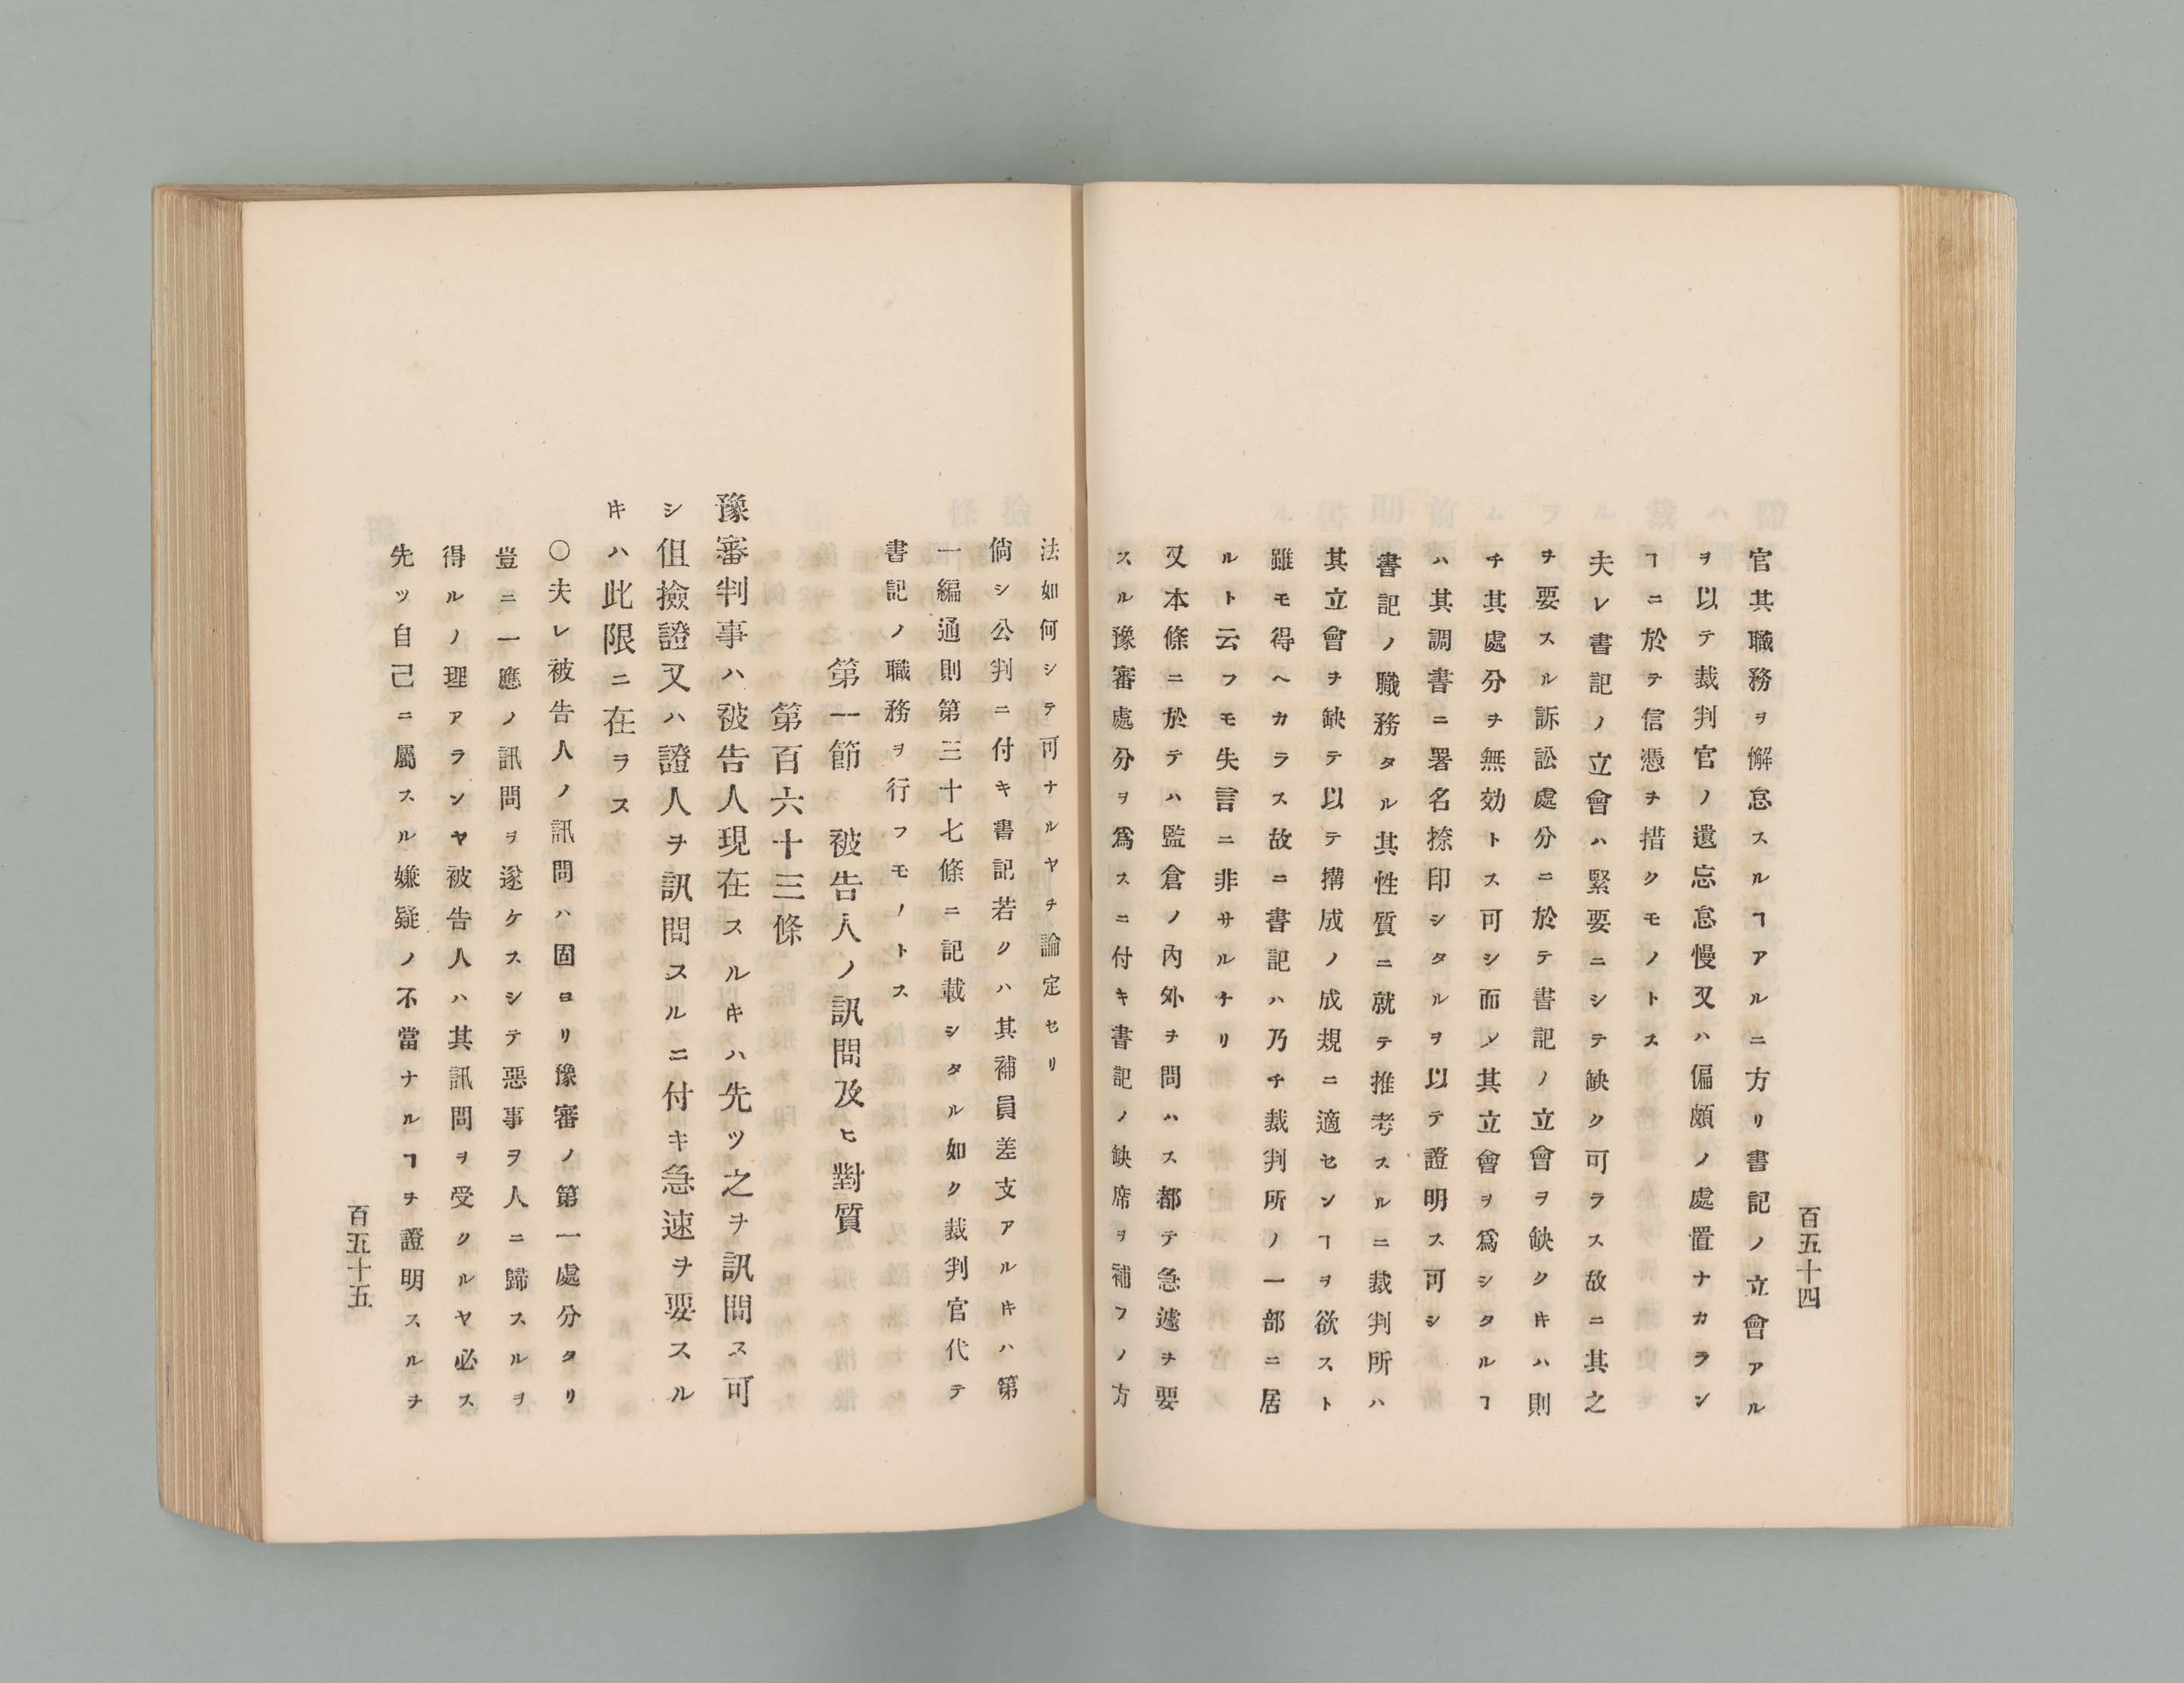 百五十四
官其職務ヲ懈怠スルヿアルニ方リ書記ノ立會アル
ヲ以テ裁判官ノ遺忘怠慢又ハ偏頗ノ處置ナカラン
ヿニ於テ信憑チ措クモノトス
夫レ書記ノ立會ハ緊要ニシテ缺ク可ラス故ニ其之
ヲ要スル訴訟處分ニ於テ書記ノ立會ヲ缺クキハ則
チ其處分チ無効トス可シ而メ其立會ヲ爲シタルヿ
ハ其調書ニ署名捺印シタルヲ以テ證明ス可シ
書記ノ職務タル其性質ニ就テ推考スルニ裁判所ハ
其立會ヲ缺テ以テ搆成ノ成規ニ適センヿヲ欲スト
雖モ得ヘカラス故ニ書記ハ乃チ裁判所ノ一部ニ居
ルト云フモ失言ニ非サルナリ
又本條ニ於テハ監倉ノ內外ヲ問ハス都テ急遽ヲ要
スル豫審處分ヲ爲スニ付キ書記ノ缺席ヲ補フノ方
法如何シテ可ナルヤチ論定セリ
倘シ公判ニ付キ書記若クハ其補員差支アルキハ第
一編通則第三十七條ニ記載シタル如ク裁判官代テ
書記ノ職務ヲ行フモノトス
第一節 被告人ノ訊問及ヒ對質
第百六十三條
豫審判事ハ被告人現在スルキハ先ツ之ヲ訊問ス可
シ但撿證又ハ證人ヲ訊問スルニ付キ急速ヲ要スル
キハ此限ニ在ヲス
〇夫レ被告人ノ訊問ハ固ヨリ豫審ノ第一處分タリ
豈ニ一應ノ訊問ヲ遂ケスシテ惡事ヲ人ニ歸スルヲ
得ルノ理アランヤ被告人ハ其訊問ヲ受クルヤ必ス
先ッ自己ニ屬スル嫌疑ノ不當ナルヿヲ證明スルヲ
百五十五